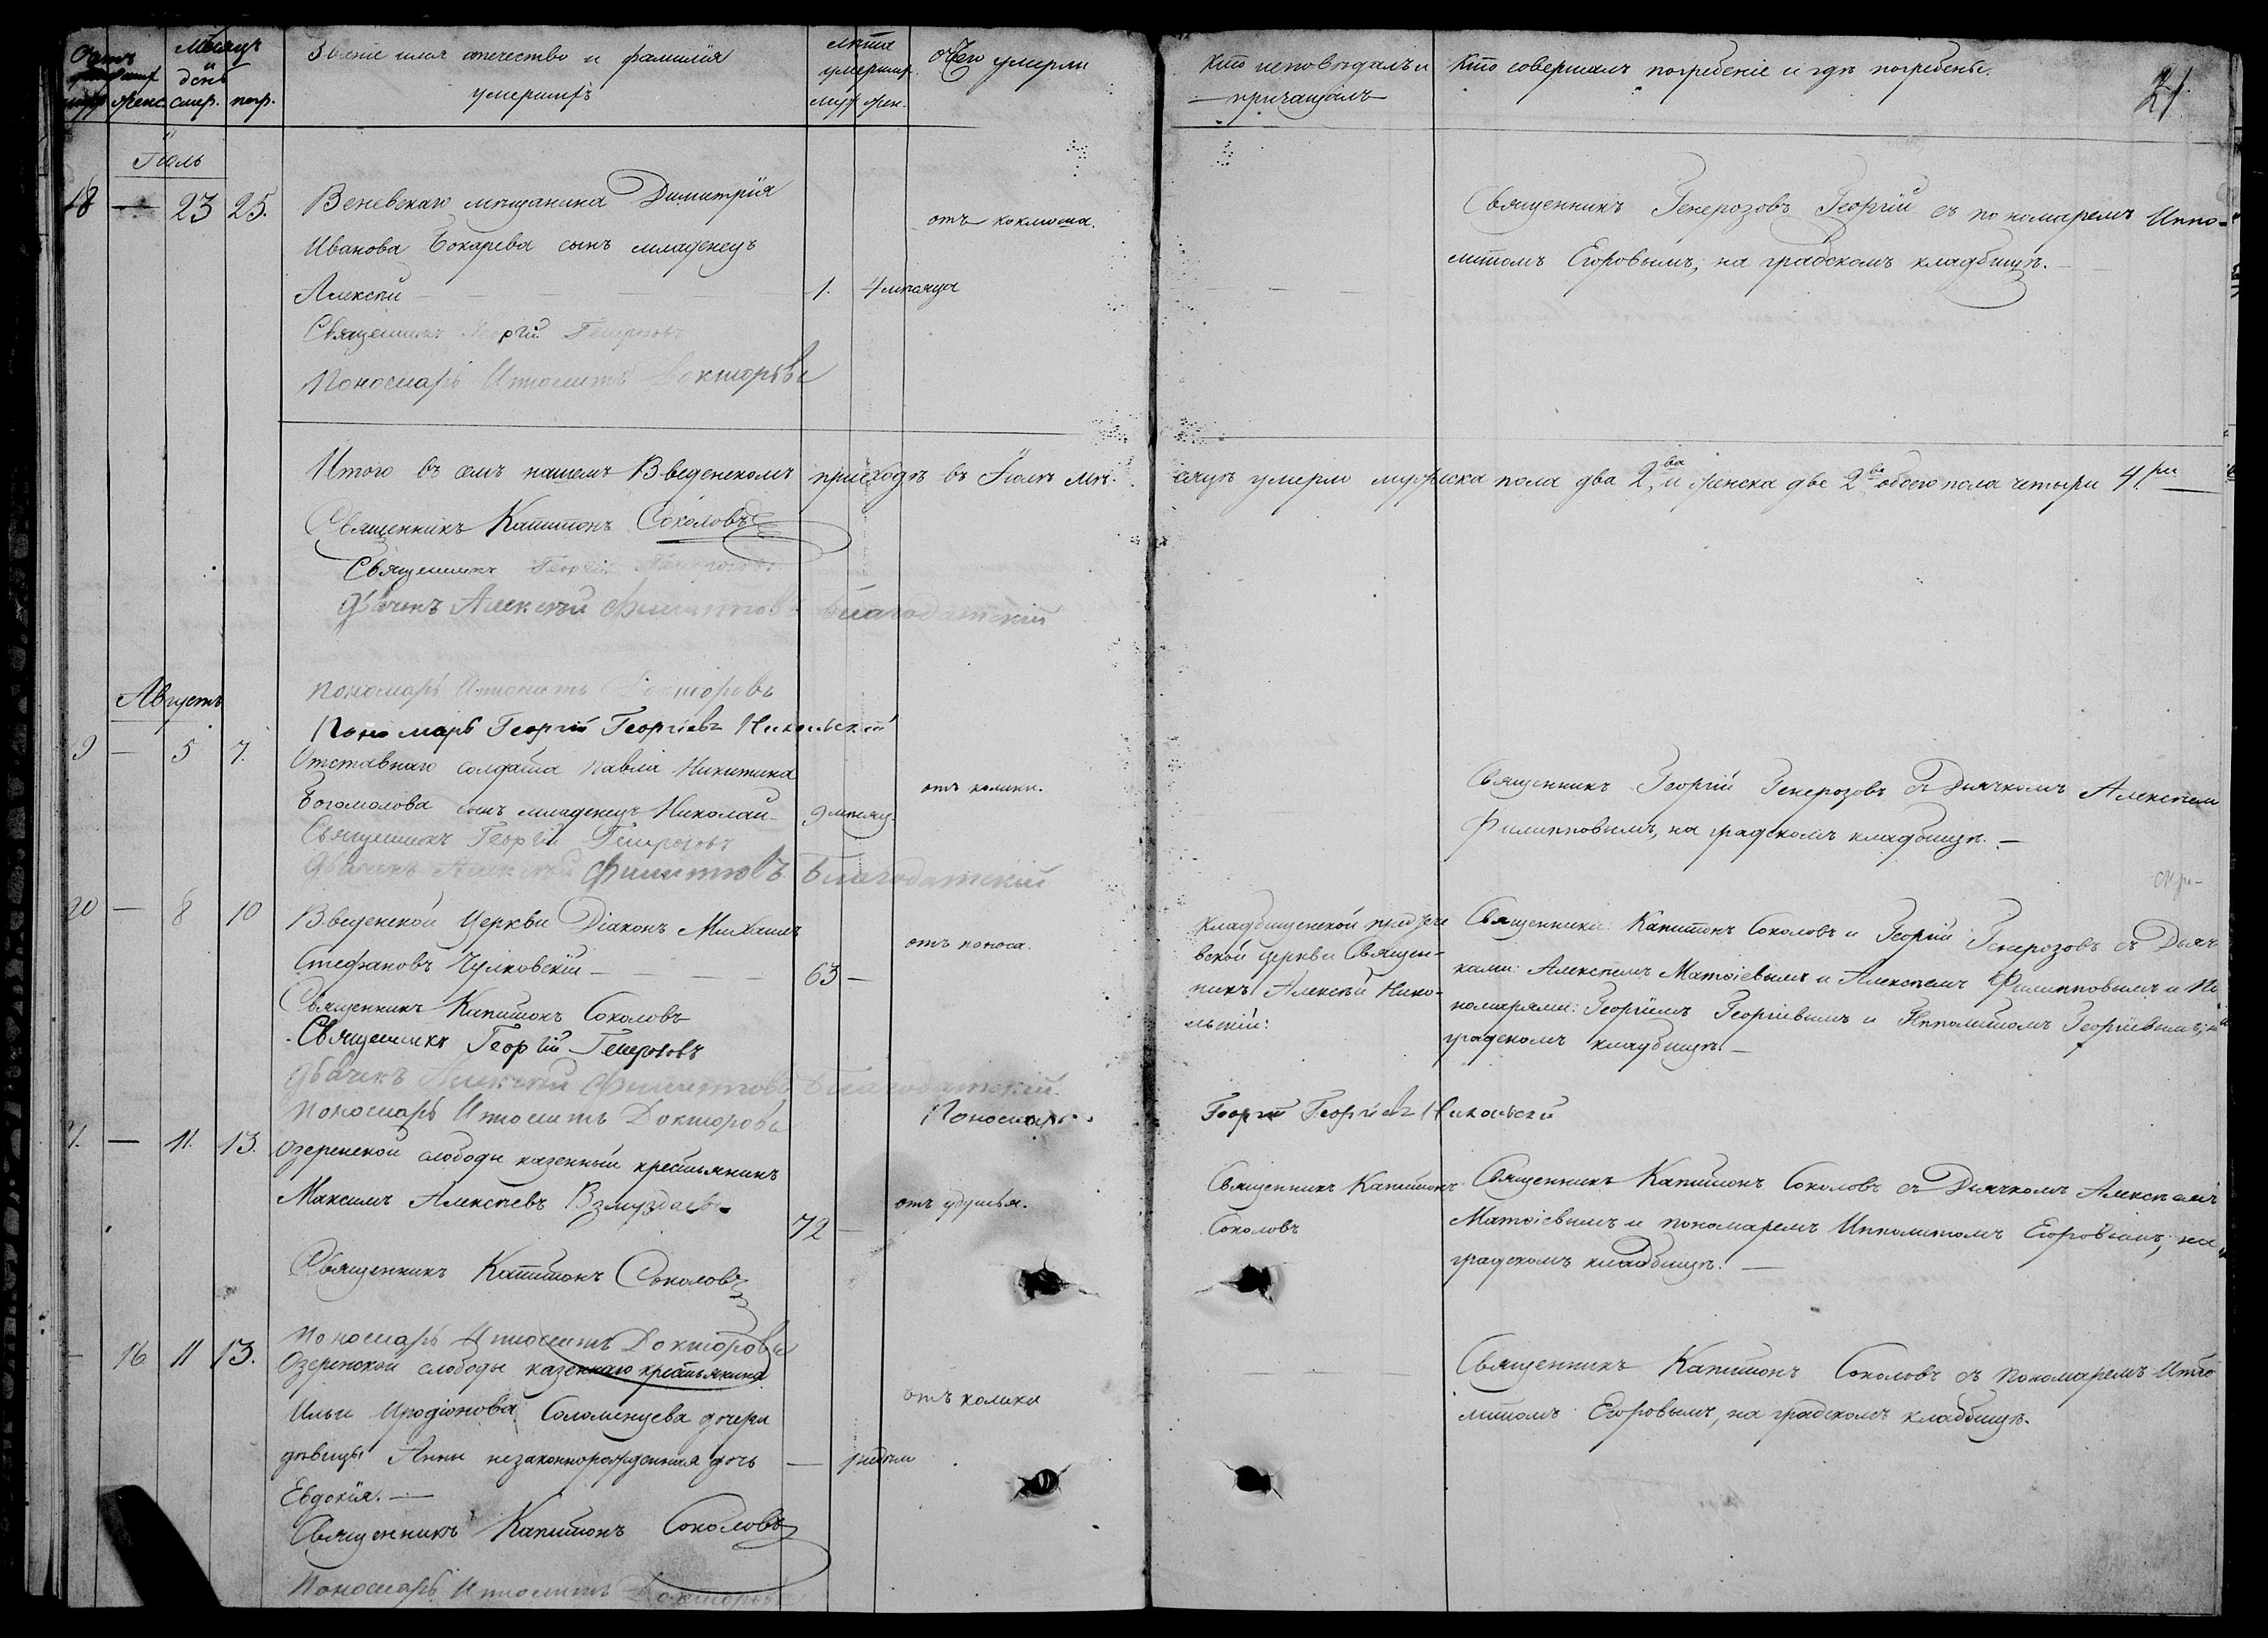 Мѣсяцъ и день
смер. погр.
Званіе имя отечество и фамилія
умершихъ
лѣта
умерших.
муж. жен.
отъ чего умерли
Кто исповѣдалъ и
причащалъ
Кто совершалъ погребеніе и гдѣ погребены.
21
Іюль
18 — 23 25.
Веневскаго мѣщанина Димитрія
Иванова Бокарева сынъ младенецъ
Алексѣй — 1. 4 мѣсяца
отъ коклюша.
Священникъ Генерозовъ Георгій съ пономаремъ Иппо-
литомъ Егоровымъ, на градскомъ кладбищѣ.
Священникъ Георгій Генерозовъ
Пономарь Иполитъ Докторовъ
Итого въ семъ нашемъ Введенскомъ приходѣ въ Іюлѣ мѣ-
сяцѣ умерло мужеска пола два 2,ва и женска две 2ве обоего пола четыри 4.ри
Священникъ Капитонъ Соколовъ
Священникъ Георгій Генерозовъ
Дьячекъ Алексѣй Филипповъ Благодатскій
Пономарь Иполитъ Докторовъ
Пономарь Георгій Георгіевъ Никольскій
Августъ
19 — 5 7.
Отставнаго солдата Павла Никитина
Богомолова сынъ младенецъ Николай — 9 мѣсяц.
отъ колики.
Священникъ Георгій Генерозовъ съ Дьячкомъ Алексѣем
Филипповымъ, на градскомъ кладбищѣ. —
Священникъ Георгій Генерозовъ
Дьячекъ Алексѣй Филипповъ Благодатскій
20 — 8 10
Введенской Церкви Діаконъ Михаилъ
Стефановъ Чулковскій — 63 —
отъ поноса.
Кладбищенской предтече
вской церкви Священ-
никъ Алексѣй Нико-
льскій:
Священники: Капитонъ Соколовъ и Георгій Генерозовъ съ Дьяч
ками: Алексѣемъ Матвіевымъ и Алексѣемъ Филипповымъ и По
номарями: Георгіемъ Георгіевымъ и Ипполитомъ Георгіевымъ, на
градскомъ кладбищѣ. —
Священникъ Капитонъ Соколовъ
Священникъ Георгій Генерозовъ
Дьячекъ Алексѣй Филипповъ Благодатскій
Пономарь Иполитъ Докторовъ
Пономарь Георгій Георгіевъ Никольскій
21. — 11. 13.
Озеренской слободы казенный крестьянинъ
Максимъ Алексѣевъ Взмуздаевъ
72 —
отъ удушья.
Священникъ Капитонъ
Соколовъ
Священникъ Капитонъ Соколовъ съ Дьячкомъ Алексѣемъ
Матвіевымъ и пономаремъ Ипполитомъ Егоровымъ, на
градскомъ кладбищѣ. —
Священникъ Капитонъ Соколовъ
Пономарь Иполитъ Докторовъ
— 16 11 13.
Озеренской слободы казеннаго крестьянина
Ильи Иродіонова Соломенцева дочери
дѣвицы Анны незаконнорожденная дочь
Евдокія. —
отъ колики
Священникъ Капитонъ Соколовъ съ Пономаремъ Иппо
литомъ Егоровымъ, на градскомъ кладбищѣ.
Священникъ Капитонъ Соколовъ
Пономарь Иполитъ Докторовъ